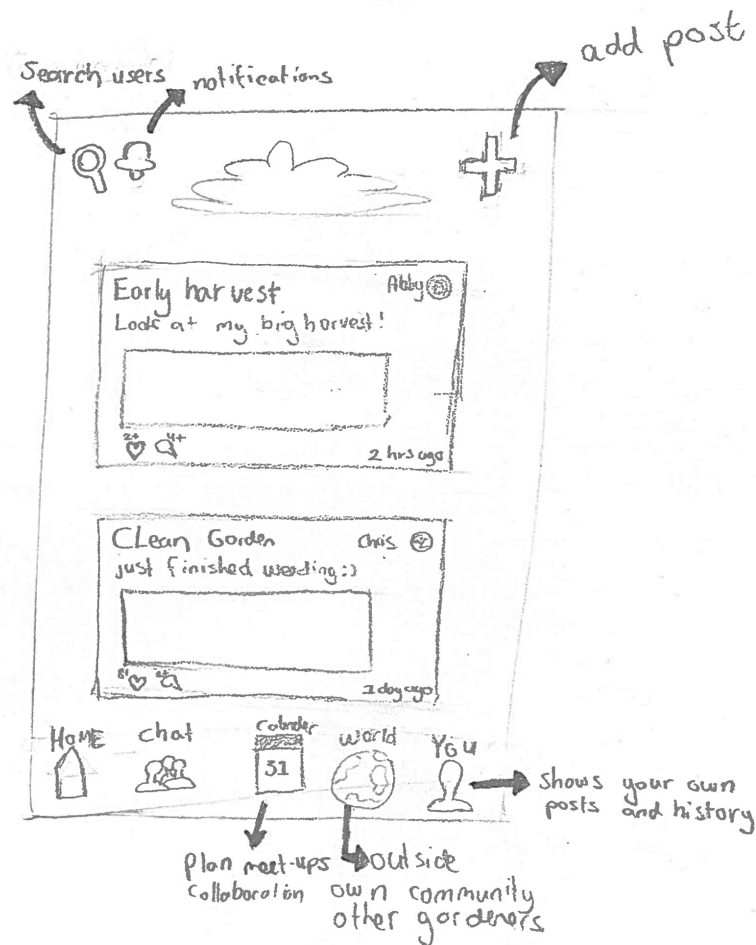 add post
Search users
notifications
Early harvest
Abby
Look at my big harvest!
2+
4+
2 hrs ago
CLean Garden
Chris
just finished weeding:)
1 day ago
HOME
chat
Calender
31
world
You
Shows your own
posts and history
plan meet-ups
Collaboration
outside
own community
other gardeners